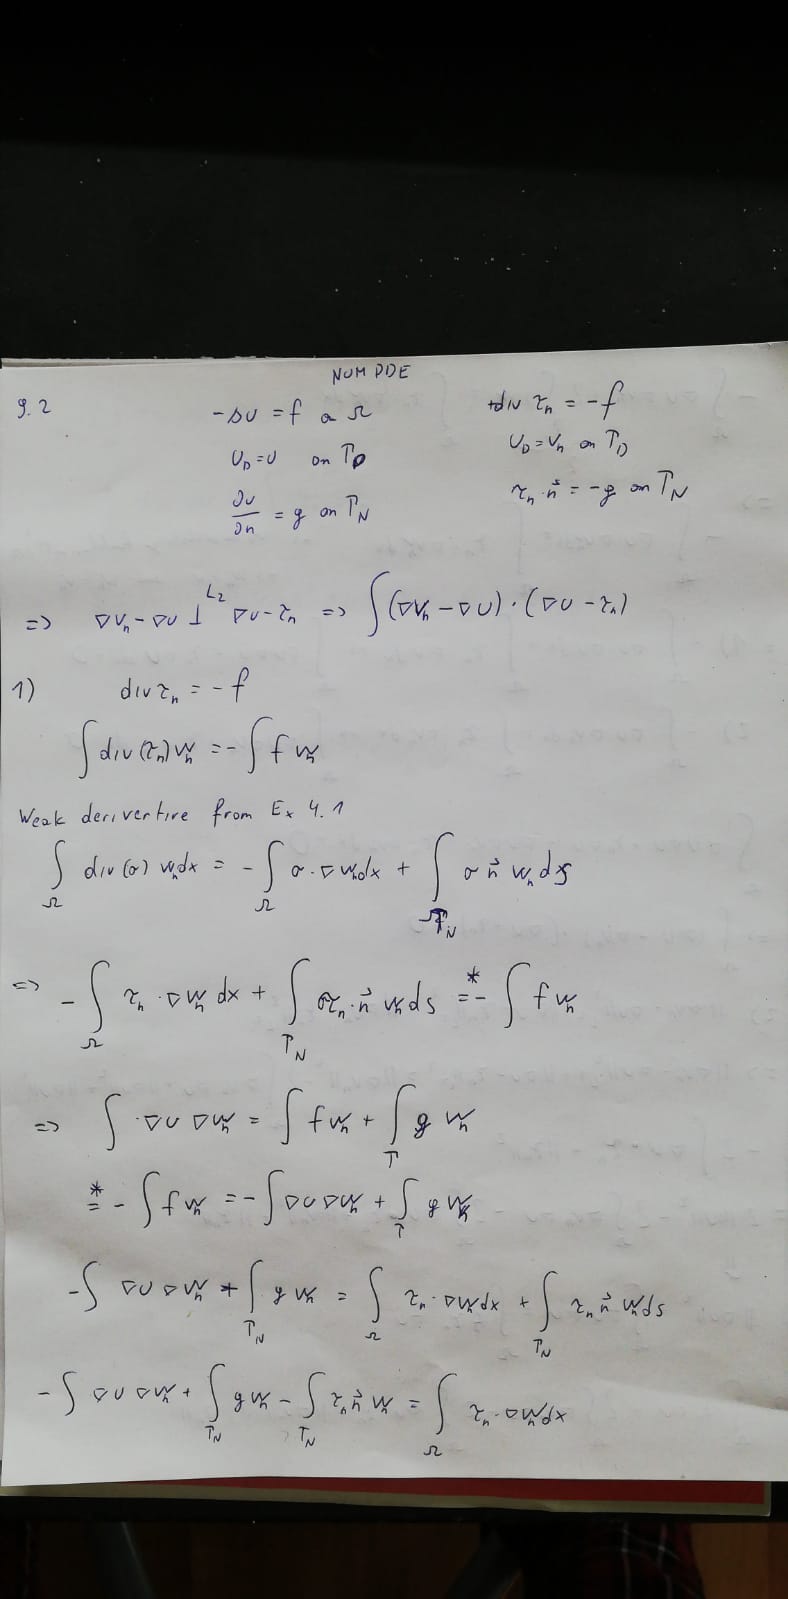 NUM PDE
9.2
-Δu = f in Ω
u_D = u on Γ_D
∂u/∂n = g on Γ_N
+div τ_n = -f
u_D = v_h on Γ_D
τ_n · n⃗ = -g on Γ_N
=> ∇v_h - ∇u ⊥^{L_2} ∇u - τ_n => ∫(∇v_h - ∇u) · (∇u - τ_n)
1) div τ_n = -f
∫ div(τ_n) w_h = - ∫ f w_h
Weak derivertive from Ex 4.1
∫_Ω div(σ) w_h dx = - ∫_Ω σ · ∇w_h dx + ∫_{Γ_N} σ n⃗ w_h ds
=> - ∫_Ω τ_n · ∇w_h dx + ∫_{Γ_N} τ_n · n⃗ w_h ds =* - ∫ f w_h
=> ∫ · ∇u ∇w_h = ∫ f w_h + ∫_Γ g w_h
=* - ∫ f w_h = - ∫ ∇u ∇w_h + ∫_Γ g w_h
- ∫ ∇u ∇w_h + ∫_{Γ_N} g w_h = ∫_Ω τ_n · ∇w_h dx + ∫_{Γ_N} τ_n n⃗ w_h ds
- ∫ ∇u ∇w_h + ∫_{Γ_N} g w_h - ∫_{Γ_N} τ_n n⃗ w_h = ∫_Ω τ_n · ∇w_h dx